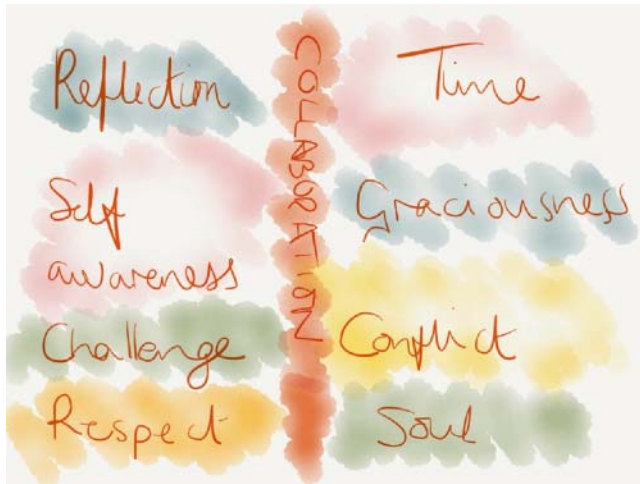 Reflection
Self
awareness
Challenge
Respect
COLLABORATION
Time
Graciousness
Conflict
Soul